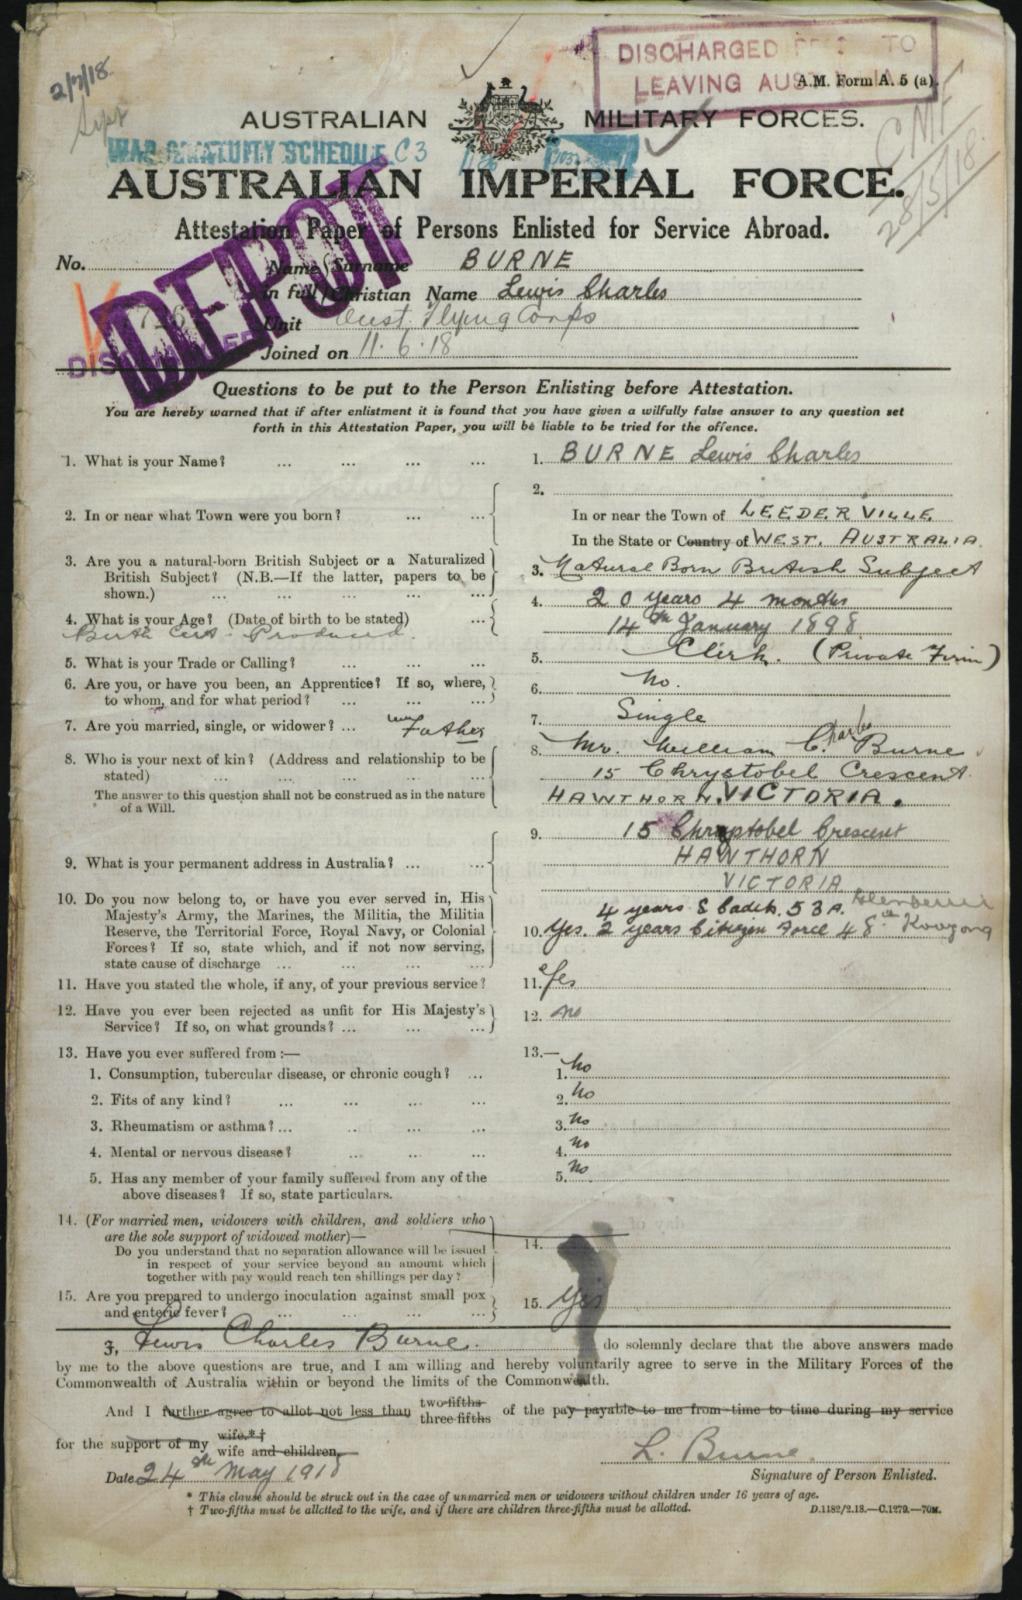 2/7/18
DISCHARGED TO
LEAVING AUS
A.M. Form A. 5 (a).
AUSTRALIAN MILITARY FORCES.
CNF
28/5/18
WAR GRATUITY SCHEDULE C3
AUSTRALIAN IMPERIAL FORCE.
Attestation Paper of Persons Enlisted for Service Abroad.
DEPOT
No. Name in full { Surname BURNE
Christian Name Lewis Charles
Unit Aust. Flying Corps
Joined on 11.6.18
Questions to be put to the Person Enlisting before Attestation.
You are hereby warned that if after enlistment it is found that you have given a wilfully false answer to any question set
forth in this Attestation Paper, you will be liable to be tried for the offence.
1. What is your Name? ... ... ... ... 1. BURNE Lewis Charles
2. In or near what Town were you born? ... ... 2.
In or near the Town of LEEDERVILLE
In the State or Country of WEST. AUSTRALIA
3. Are you a natural-born British Subject or a Naturalized
British Subject? (N.B.—If the latter, papers to be
shown.) ... ... ... ... 3. Natural Born British Subject
4. What is your Age? (Date of birth to be stated) ... 4. 20 years 4 months
Birth Cert. Produced. 14th January 1898
5. What is your Trade or Calling? ... ... ... 5. Clerk. (Private Firm)
6. Are you, or have you been, an Apprentice? If so, where,
to whom, and for what period? ... ... ... 6. No.
7. Are you married, single, or widower? ... ... 7. Single
Father
8. Who is your next of kin? (Address and relationship to be
stated) ... ... ... ...
The answer to this question shall not be construed as in the nature
of a Will.
8. Mr. William C. Charles Burne
15 Chrystobel Crescent
HAWTHORN. VICTORIA.
9. What is your permanent address in Australia? ... ... 9. 15 Chrystobel Crescent
HAWTHORN
VICTORIA
10. Do you now belong to, or have you ever served in, His
Majesty's Army, the Marines, the Militia, the Militia
Reserve, the Territorial Force, Royal Navy, or Colonial
Forces? If so, state which, and if not now serving,
state cause of discharge ... ... ... ...
4 years S Cadets. 53A. Glenferrie
10. Yes. 2 years Citizen Force 48th Kooyong
11. Have you stated the whole, if any, of your previous service? 11. Yes
12. Have you ever been rejected as unfit for His Majesty's
Service? If so, on what grounds? ... ... ... 12. no
13. Have you ever suffered from:— 13.—
1. Consumption, tubercular disease, or chronic cough? ... 1. No
2. Fits of any kind? ... ... ... 2. No
3. Rheumatism or asthma? ... ... ... ... 3. No
4. Mental or nervous disease? ... ... ... 4. No
5. Has any member of your family suffered from any of the
above diseases? If so, state particulars. 5. No
14. (For married men, widowers with children, and soldiers who
are the sole support of widowed mother)—
Do you understand that no separation allowance will be issued
in respect of your service beyond an amount which
together with pay would reach ten shillings per day? 14.
15. Are you prepared to undergo inoculation against small pox
and enteric fever? ... ... ... ... 15. Yes
I, Lewis Charles Burne. do solemnly declare that the above answers made
by me to the above questions are true, and I am willing and hereby voluntarily agree to serve in the Military Forces of the
Commonwealth of Australia within or beyond the limits of the Commonwealth.
And I further agree to allot not less than two-fifths three-fifths of the pay payable to me from time to time during my service
for the support of my wife.*† wife and children.
L. Burne.
Date 24th May 1918 Signature of Person Enlisted.
* This clause should be struck out in the case of unmarried men or widowers without children under 16 years of age.
† Two-fifths must be allotted to the wife, and if there are children three-fifths must be allotted. D.1182/2.18.—C.1279.—70M.